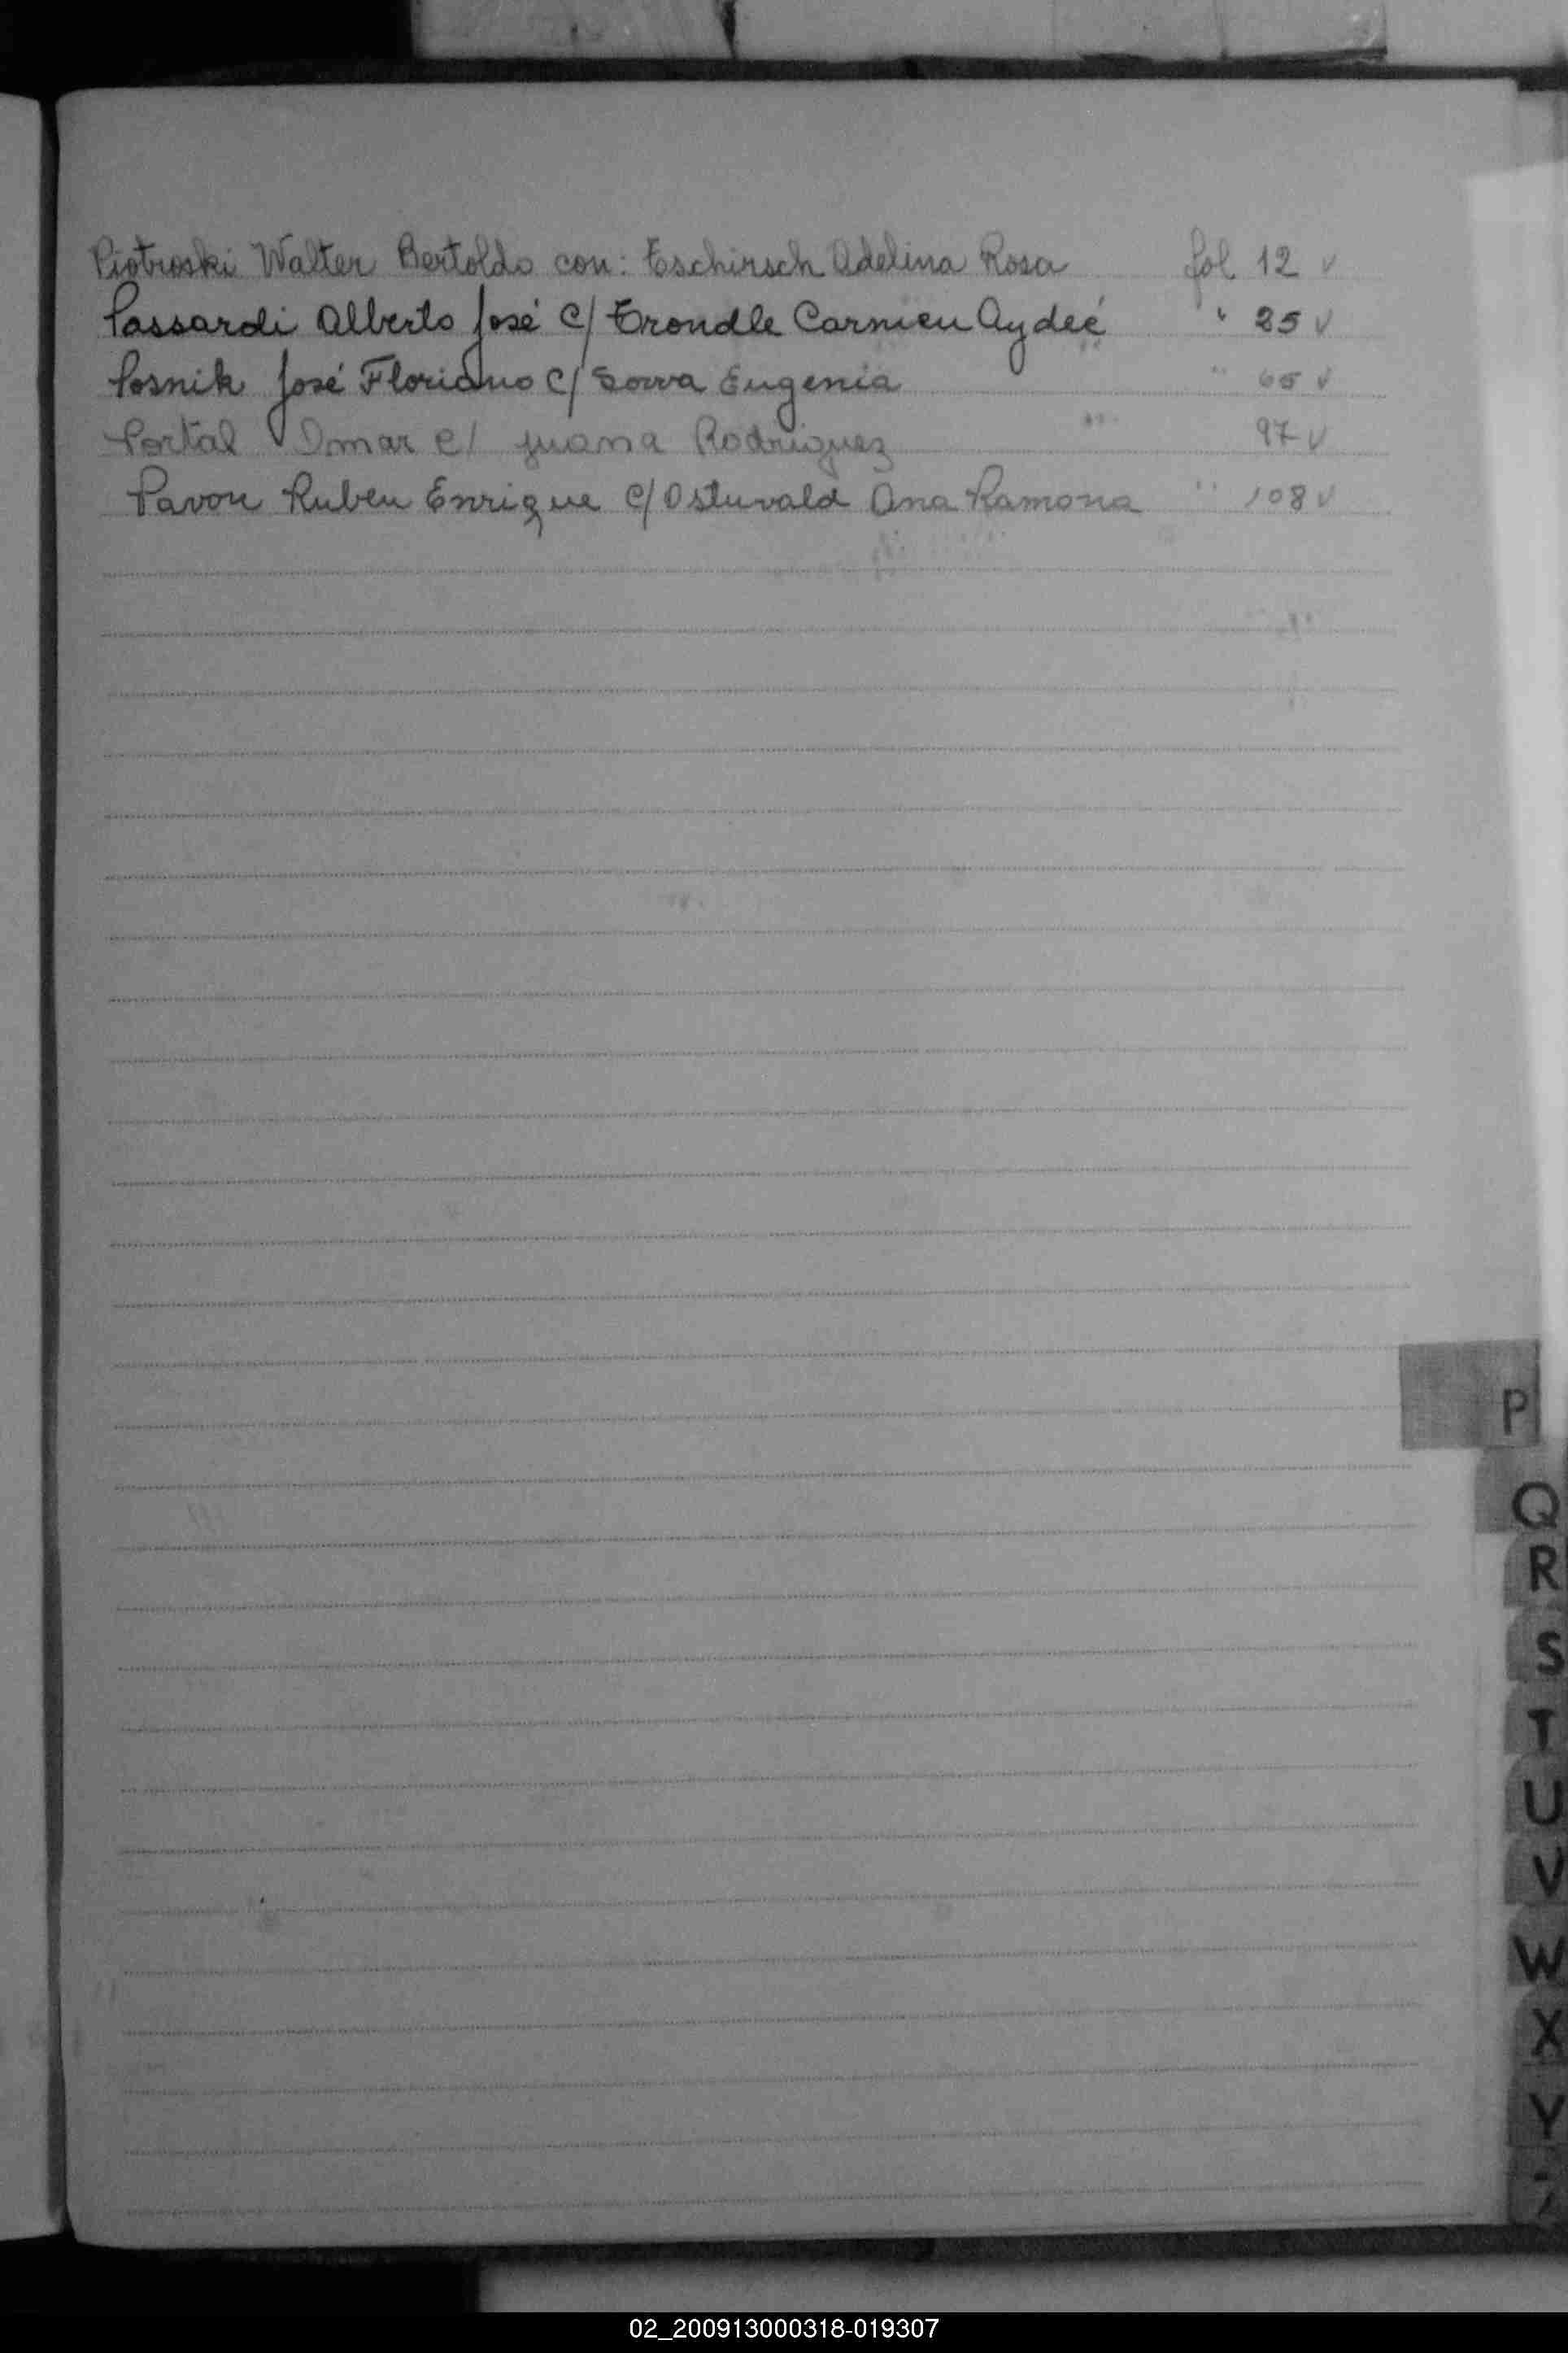 Piotroski Walter Bertoldo con: Eschirsch Adelina Rosa fol 12 v
Passardi Alberto José c/ Trondle Carmen Aydeé " 25 v
Posnik José Floriano c/ Sowa Eugenia " 65 v
Portal Omar c/ Juana Rodriguez 97 v
Pavon Ruben Enrique c/ Osturvald Ana Ramona " 108 v
P
Q
R
S
T
U
V
W
X
Y
Z
02_200913000318-019307